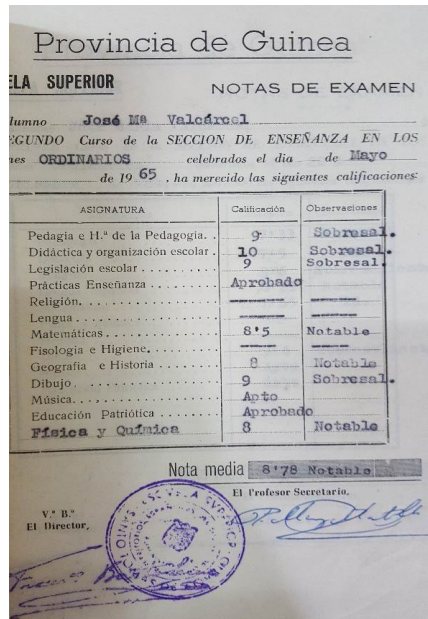 Provincia de Guinea
ELA SUPERIOR NOTAS DE EXAMEN
lumno José Mª Valcárcel
EGUNDO Curso de la SECCION DE ENSEÑANZA EN LOS
nes ORDINARIOS celebrados el dia __ de Mayo
de 1965, ha merecido las siguientes calificaciones:
ASIGNATURA Calificación Observaciones
Pedagía e H.ª de la Pedagogía. . 9 Sobresal.
Didáctica y organización escolar . 10 Sobresal.
Legislación escolar . . . . . . . . . 9 Sobresal.
Prácticas Enseñanza . . . . . . . . Aprobado
Religión. . . . . . . . . . . . . . . ----- -----
Lengua . . . . . . . . . . . . . . . . ----- -----
Matemáticas. . . . . . . . . . . . . 8'5 Notable
Fisología e Higiene. . . . . . . . . ----- -----
Geografía e Historia . . . . . . . . 8 Notable
Dibujo . . . . . . . . . . . . . . . . 9 Sobresal.
Música. . . . . . . . . . . . . . . . Apto
Educación Patriótica . . . . . . . Aprobado
Física y Química 8 Notable
Nota media 8'78 Notable
El Profesor Secretario,
V.º B.º
El Director,